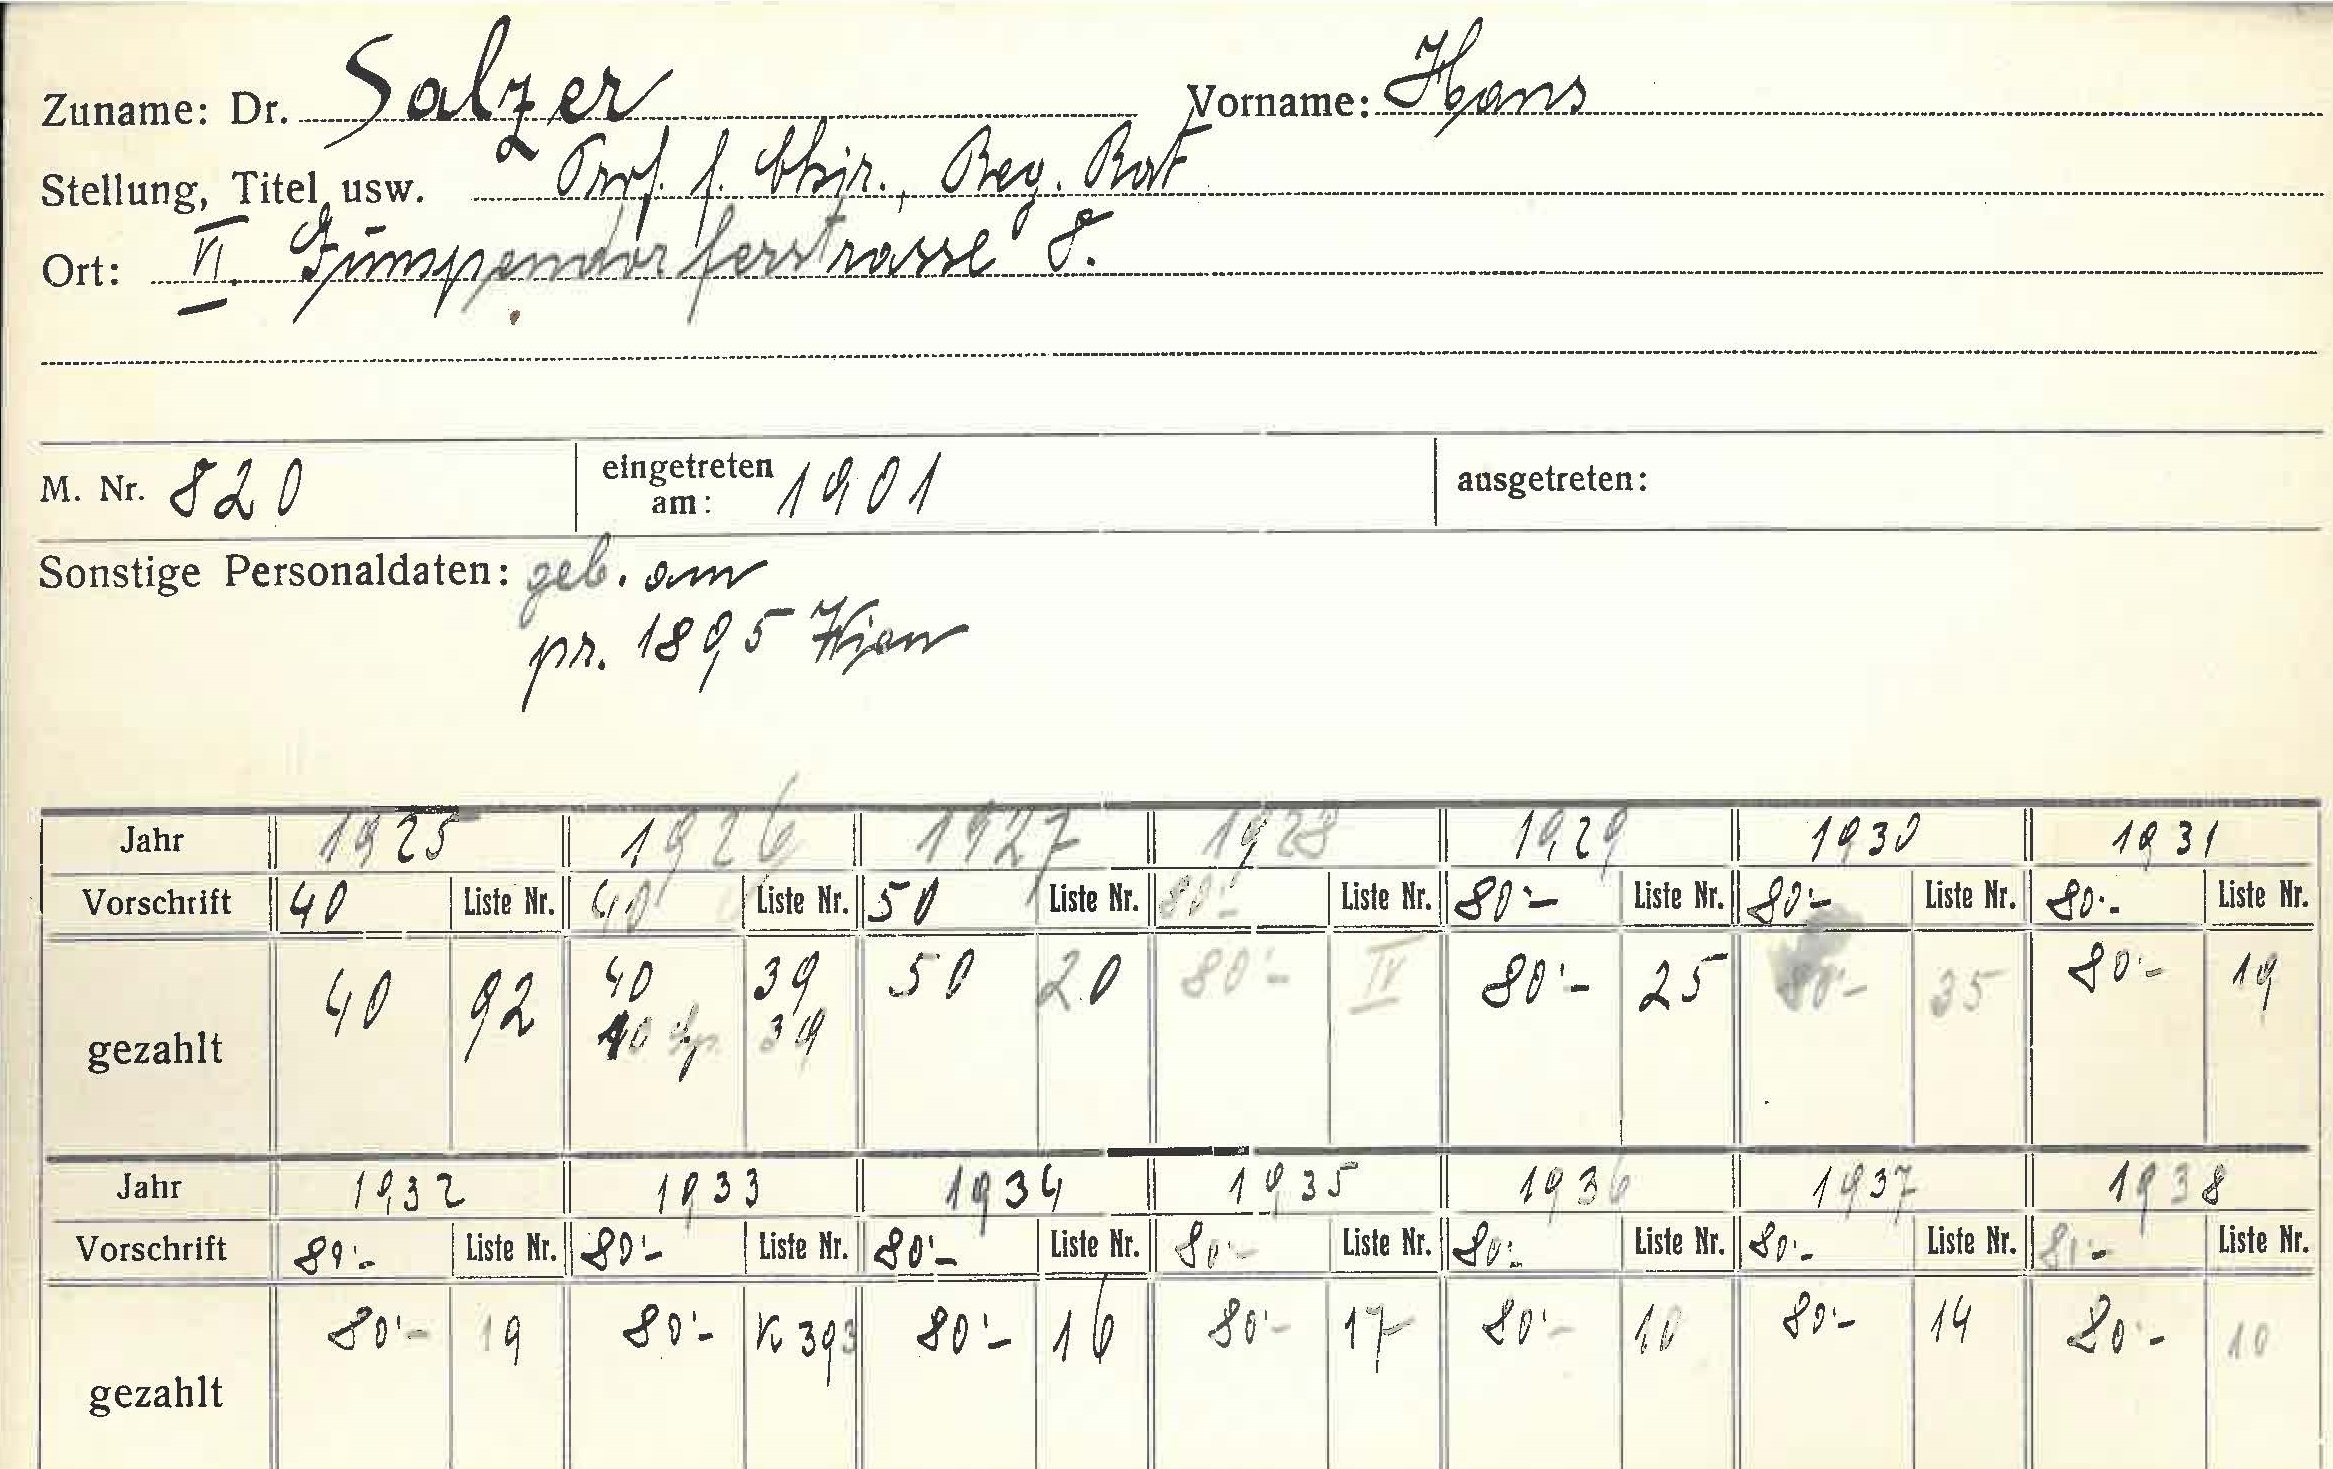 Zuname: Dr. Salzer Vorname: Hans
Stellung, Titel usw. Prof. f. Chir., Reg. Rat
Ort: VI. Gumpendorferstrasse 8.
M. Nr. 820 eingetreten am: 1901 ausgetreten:
Sonstige Personaldaten: geb. am
pr. 1895 Wien
Jahr 1925 1926 1927 1928 1929 1930 1931
Vorschrift 40 Liste Nr. 40 Liste Nr. 50 Liste Nr. 80'- Liste Nr. 80'- Liste Nr. 80'- Liste Nr. 80'- Liste Nr.
gezahlt 40 92 40 39 50 20 80'- IV 80'- 25 80'- 35 80'- 19
40 39
Jahr 1932 1933 1934 1935 1936 1937 1938
Vorschrift 80'- Liste Nr. 80'- Liste Nr. 80'- Liste Nr. 80'- Liste Nr. 80'- Liste Nr. 80'- Liste Nr. 80'- Liste Nr.
gezahlt 80'- 19 80'- K 393 80'- 16 80'- 17 80'- 10 80'- 14 80'- 10